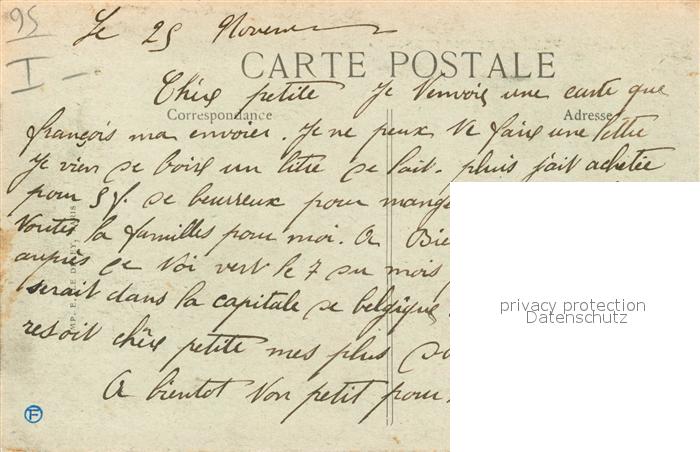 95
I -
Le 25 Novem
CARTE POSTALE
Chére petite Je t'envoie une carte que
Correspondance
Adresse
françois ma envoier. Je ne peux te faire une lettre
Je vien de boire un litre de lait. pluis j'ait achetée
pour 5 f. de beurreux pour mang
toutes la familles pour moi. A Bie
auprés de toi vert le 7 du mois
serait dans la capitale de belgique
resoit chére petite mes plus do
A bientot ton petit pour
privacy protection
Datenschutz